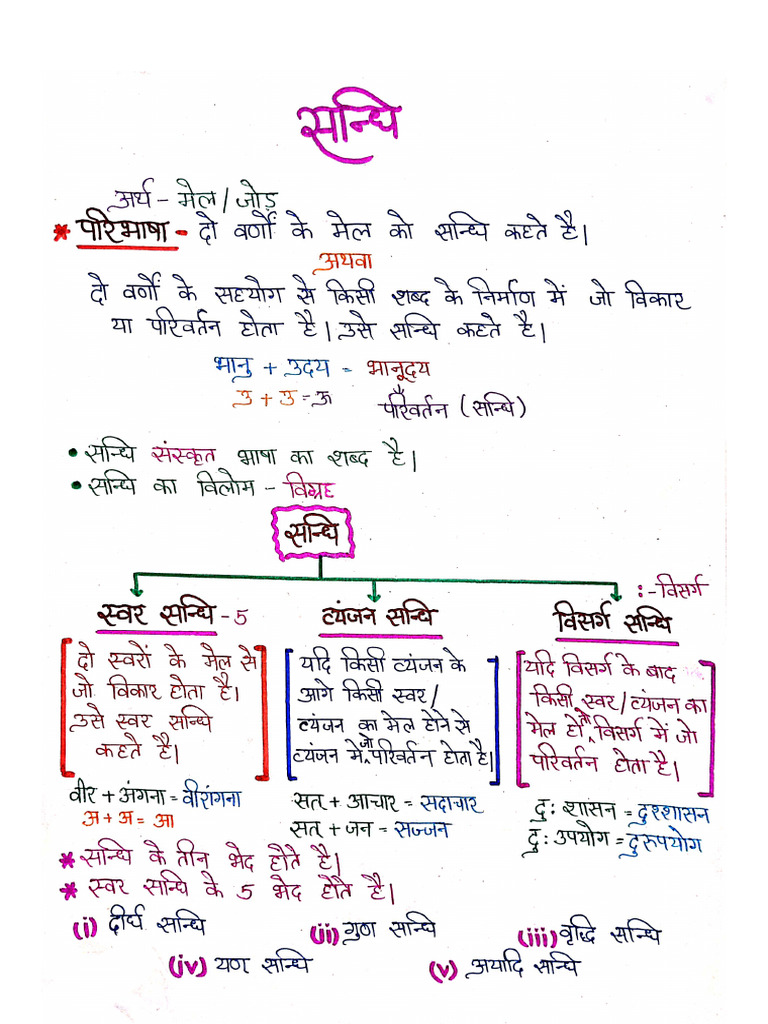 सन्धि
अर्थ - मेल / जोड़
* परिभाषा - दो वर्णों के मेल को सन्धि कहते है।
अथवा
दो वर्णों के सहयोग से किसी शब्द के निर्माण में जो विकार
या परिवर्तन होता है। उसे सन्धि कहते है।
भानु + उदय = भानूदय
उ + उ = ऊ
परिवर्तन (सन्धि)
• सन्धि संस्कृत भाषा का शब्द है।
• सन्धि का विलोम - विग्रह
सन्धि
: - विसर्ग
स्वर सन्धि - 5
दो स्वरों के मेल से
जो विकार होता है।
उसे स्वर सन्धि
कहते है।
वीर + अंगना = वीरांगना
अ + अ = आ
व्यंजन सन्धि
यदि किसी व्यंजन के
आगे किसी स्वर /
व्यंजन का मेल होने से
व्यंजन में जो परिवर्तन होता है।
सत + आचार = सदाचार
सत + जन = सज्जन
विसर्ग सन्धि
यदि विसर्ग के बाद
किसी स्वर / व्यंजन का
मेल हो तो विसर्ग में जो
परिवर्तन होता है।
दुः शासन = दुश्शासन
दुः उपयोग = दुरुपयोग
* सन्धि के तीन भेद होते है।
* स्वर सन्धि के 5 भेद होते है।
(i) दीर्घ सन्धि (ii) गुण सन्धि (iii) वृद्धि सन्धि
(iv) यण सन्धि (v) अयादि सन्धि